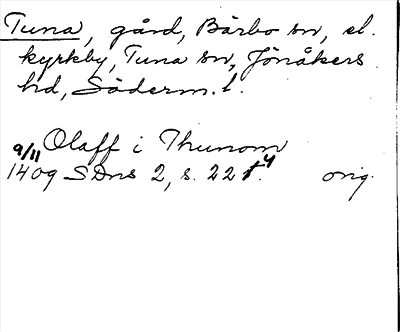 Tuna, gård, Bärbo sn, el.
kyrkby, Tuna sn, Jönåkers
hd, Söderm. l.
9/11 Olaff i Thunom
1409 SDns 2, s. 224. orig.